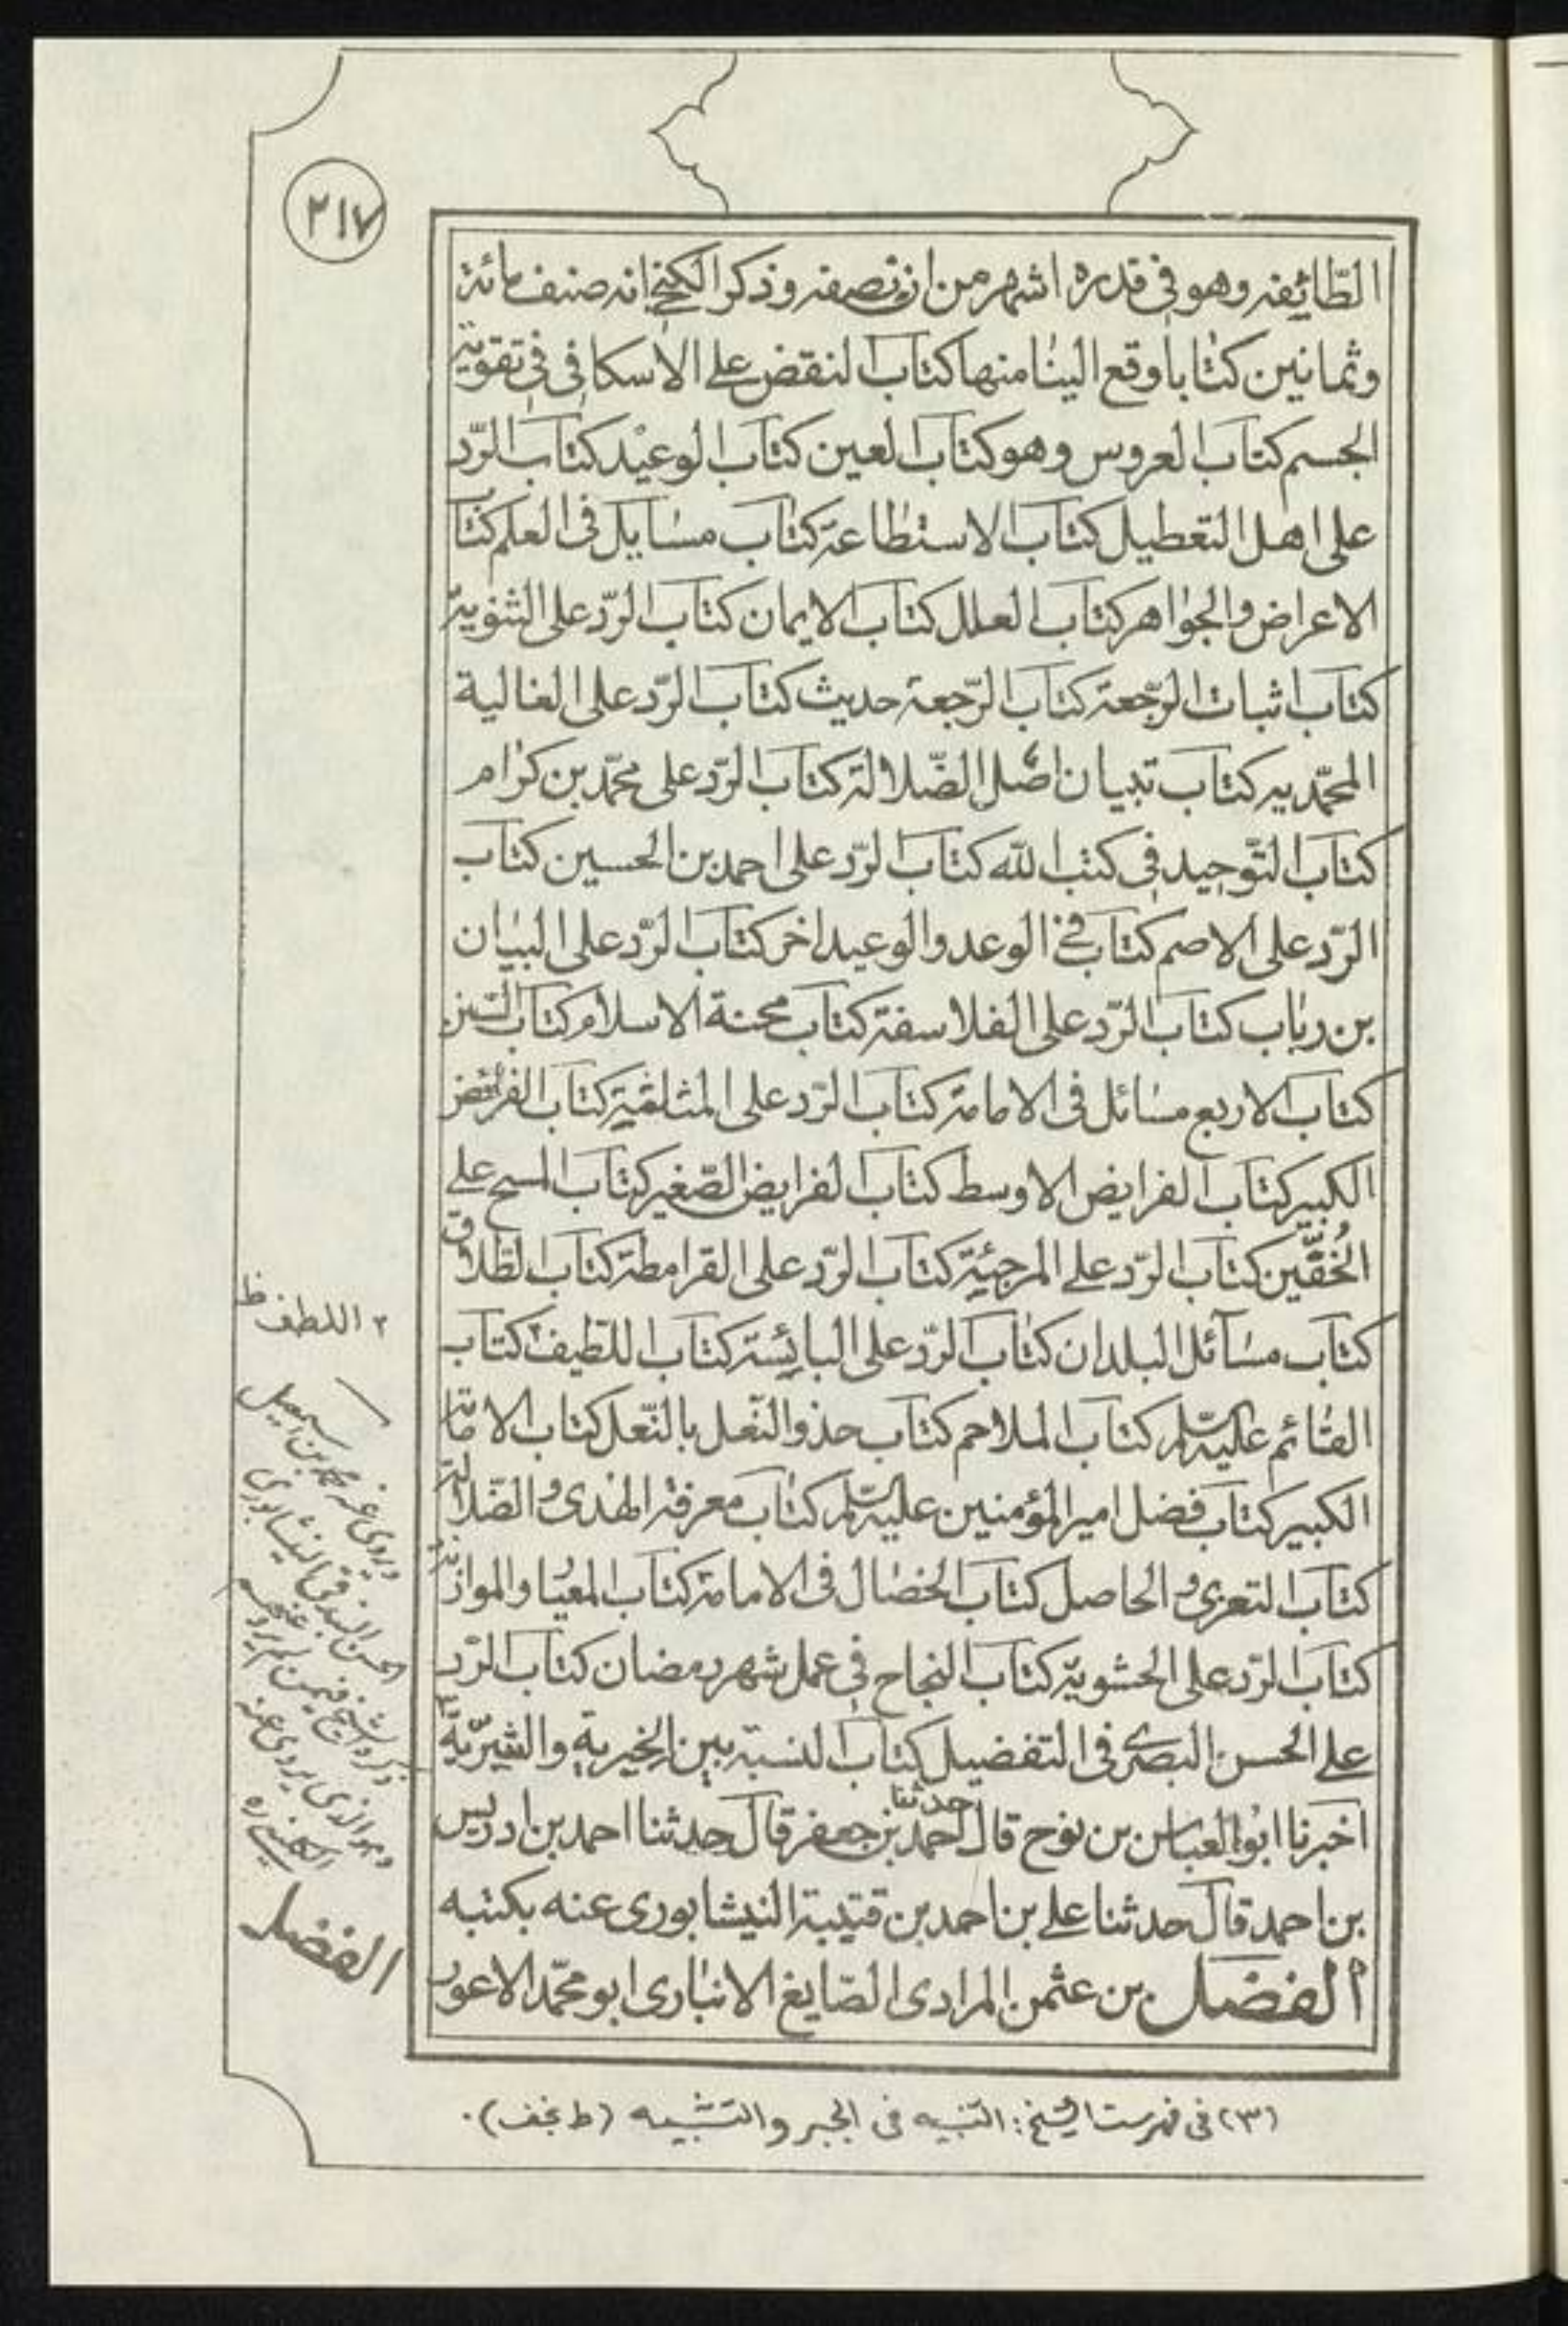 ٢١٧
الطّائفه وهو فى قدره اشهر من ان نصفه وذكر الكنجى انه صنف مائة
وثمانين كتابا وقع الينا منها كتاب النقض على الاسكافى فى تقوية
الجسم كتاب العروس وهو كتاب العين كتاب الوعيد كتاب الرّد
على اهل التعطيل كتاب الاستطاعة كتاب مسايل فى العلم كتاب
الاعراض والجواهر كتاب العلل كتاب الايمان كتاب الرّد على الثنوية
كتاب اثبات الرّجعة كتاب الرّجعة حديث كتاب الرّد على الغالية
المحمّديه كتاب تبيان اصل الضّلالة كتاب الرّد على محمّد بن كرام
كتاب التّوحيد فى كتب الله كتاب الرّد على احمد بن الحسين كتاب
الرّد على الاصم كتاب فى الوعد والوعيد اخر كتاب الرّد على البيان
بن رباب كتاب الرّد على الفلاسفة كتاب محنة الاسلام كتاب السّنن
كتاب الاربع مسائل فى الامامة كتاب الرّد على المثلثية كتاب الفرائض
الكبير كتاب الفرايض الاوسط كتاب الفرايض الصّغير كتاب المسح على
الخُفّين كتاب الرّد على المرجئة كتاب الرّد على القرامطة كتاب الطّلاق
كتاب مسآئل البلدان كتاب الرّد على البائسة كتاب اللّطيف ٢ كتاب
القائم عليه السّلم كتاب الملاحم كتاب حذو النّعل بالنّعل كتاب الامامة
الكبير كتاب فضل امير المؤمنين عليه السّلم كتاب معرفة الهدى والضّلالة
كتاب التعرى والحاصل كتاب الخصال فى الامامة كتاب المعيار والموازنة
كتاب الرّد على الحشويّة كتاب النجاح فى عمل شهر رمضان كتاب الرّد
على الحسن البصرى فى التفضيل كتاب النسبة بين الخيرية والشرّية ٣
اخبرنا ابو العباس بن نوح قال حدثنا احمد بن جعفر قال حدثنا احمد بن ادريس
بن احمد قال حدثنا على بن احمد بن قتيبة النيشابورى عنه بكتبه
الفضل بن عثمن المرادى الصّايغ الانبارى ابو محمّد الاعور
٢ اللطف ظ
ويروى عنه محمد بن اسمعيل
الحسن البندقى النيشابورى
ذكره الشيخ فيمن لم يرو عنهم
وهو الذى يروى عنه
الكلينى ره
الفضل
(٣) فى فهرست الشيخ: التنبيه فى الجبر والتشبيه (ط نجف).